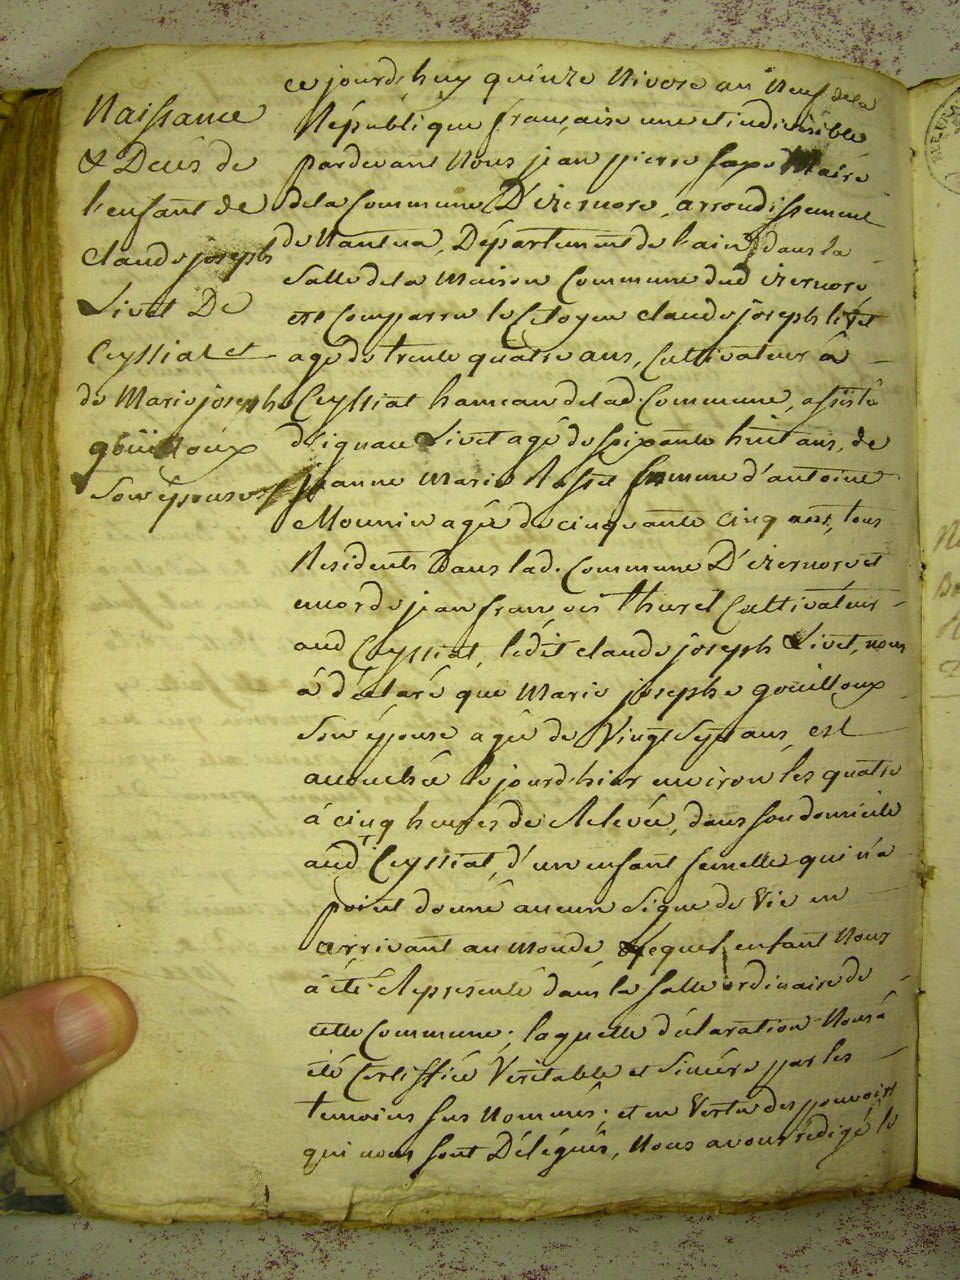 Naissance
& Decès de
l'enfant de
Claude joseph
Livet De
Ceyssiat et
de Marie josephe
gouilloux
Son épouse
ce jourd'huy quinze Nivose an Neuf de la
République française une et indivisible
pardevant Nous jean pierre Maire
de la Commune D'izernore, arrondissement
de Nantua, Département de l'ain, dans la
Salle de la Maison Commune dud izernore
est Comparru le Citoyen claude joseph livet
agé de trente quatre ans, Cultivateur à
Ceyssiat hameau de lad. Commune, assisté
d'ignace Livet agé de soixante huit ans, de
jeanne Marie femme d'antoine
Mounier agée de cinquante cinq ans, tous
Residents Dans lad. Commune D'izernore et
encore de jean françois thuret Cultivateur
aud Ceyssiat, ledit claude joseph Livet, nous
à déclaré que Marie josephe gouilloux
Son épouse agée de Vingt Sept ans, est
accouchée le jourd'hier environ les quatre
à cinq heures de Relevée, dans son domicile
aud Ceyssiat, d'un enfant femelle qui n'a
point donné aucun Signe de Vie en
arrivant au Monde, lequel enfant Nous
à été Représenté dans la Salle ordinaire de
cette Commune; laquelle déclaration Nous à
été Certiffiée Veritable et Sincère par les
temoins sus Nommés; et en Vertu des pouvoirs
qui nous sont Délégués, Nous avons rédigé le